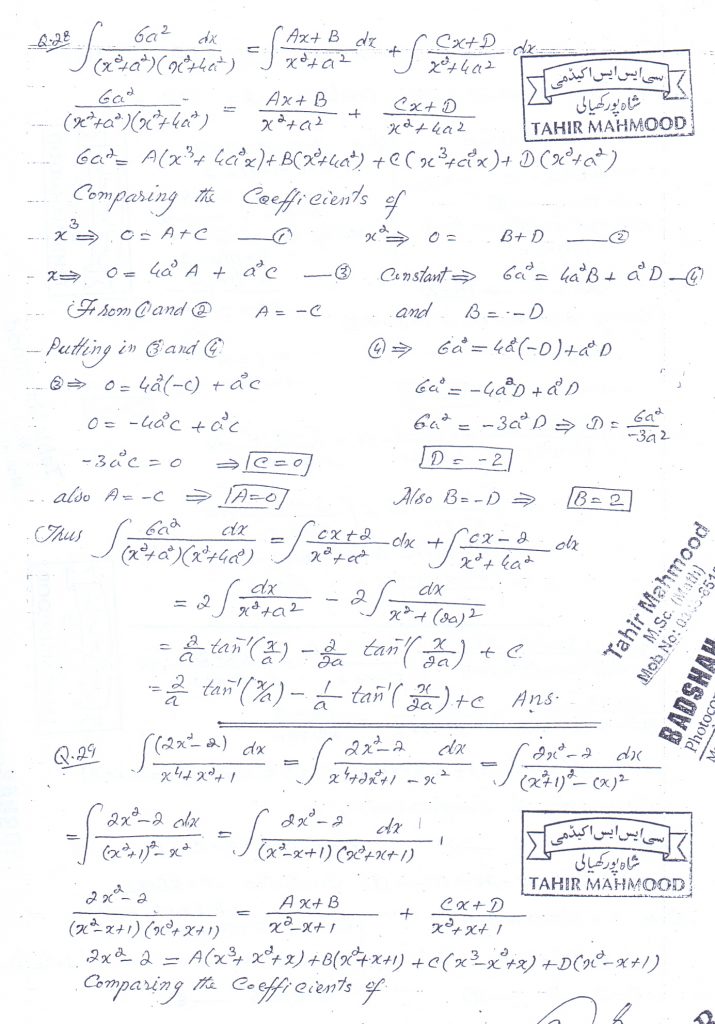 Q.28 ∫ 6a² dx / (x²+a²)(x²+4a²) = ∫ Ax+B / x²+a² dx + ∫ Cx+D / x²+4a² dx
سی ایس ایس اکیڈمی
شاہ پور کھیالی
TAHIR MAHMOOD
6a² / (x²+a²)(x²+4a²) = Ax+B / x²+a² + Cx+D / x²+4a²
6a² = A(x³+4a²x)+B(x²+4a²)+C(x³+a²x)+D(x²+a²)
Comparing the Coefficients of
x³ ⇒ 0 = A+C —① x² ⇒ 0 = B+D —②
x ⇒ 0 = 4a²A + a²C —③ Constant ⇒ 6a² = 4a²B + a²D —④
From ① and ② A = -C and B = -D
Putting in ③ and ④ ④ ⇒ 6a² = 4a²(-D)+a²D
③ ⇒ 0 = 4a²(-C) + a²C 6a² = -4a²D + a²D
0 = -4a²C + a²C 6a² = -3a²D ⇒ D = 6a² / -3a²
-3a²C = 0 ⇒ C = 0 D = -2
also A = -C ⇒ A=0 Also B=-D ⇒ B = 2
Thus ∫ 6a² dx / (x²+a²)(x²+4a²) = ∫ ox+2 / x²+a² dx + ∫ ox-2 / x²+4a² dx
= 2∫ dx / x²+a² - 2∫ dx / x²+(2a)²
= 2/a tan⁻¹(x/a) - 2/2a tan⁻¹(x/2a) + C
= 2/a tan⁻¹(x/a) - 1/a tan⁻¹(x/2a) + C Ans.
Tahir Mahmood
M.Sc. (Math)
Mob No:
BADSHAH
Photoco
Q.29 ∫ (2x²-2) dx / x⁴+x²+1 = ∫ 2x²-2 dx / x⁴+2x²+1-x² = ∫ 2x²-2 dx / (x²+1)²-(x)²
= ∫ 2x²-2 dx / (x²+1)²-x² = ∫ 2x²-2 dx / (x²-x+1)(x²+x+1)
سی ایس ایس اکیڈمی
شاہ پور کھیالی
TAHIR MAHMOOD
2x²-2 / (x²-x+1)(x²+x+1) = Ax+B / x²-x+1 + Cx+D / x²+x+1
2x²-2 = A(x³+x²+x)+B(x²+x+1)+C(x³-x²+x)+D(x²-x+1)
Comparing the Coefficients of